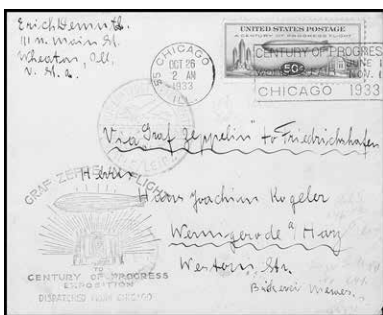 Erich Demuth.
111 N. Main St.
Wheaton, Ill.
U. S. A.
CHICAGO
OCT 26
2 AM
1933
ILL.
UNITED STATES POSTAGE
A CENTURY OF PROGRESS FLIGHT
50c
CENTURY OF PROGRESS
JUNE 1
NOV. 1
CHICAGO 1933
Via "Graf Zeppelin" to Friedrichshafen
Herrn
Hans Joachim Kogeler
Wernigerode a/ Harz
Western Str.
Bäckerei
GRAF ZEPPELIN FLIGHT
TO
CENTURY OF PROGRESS
EXPOSITION
DISPATCHED FROM CHICAGO